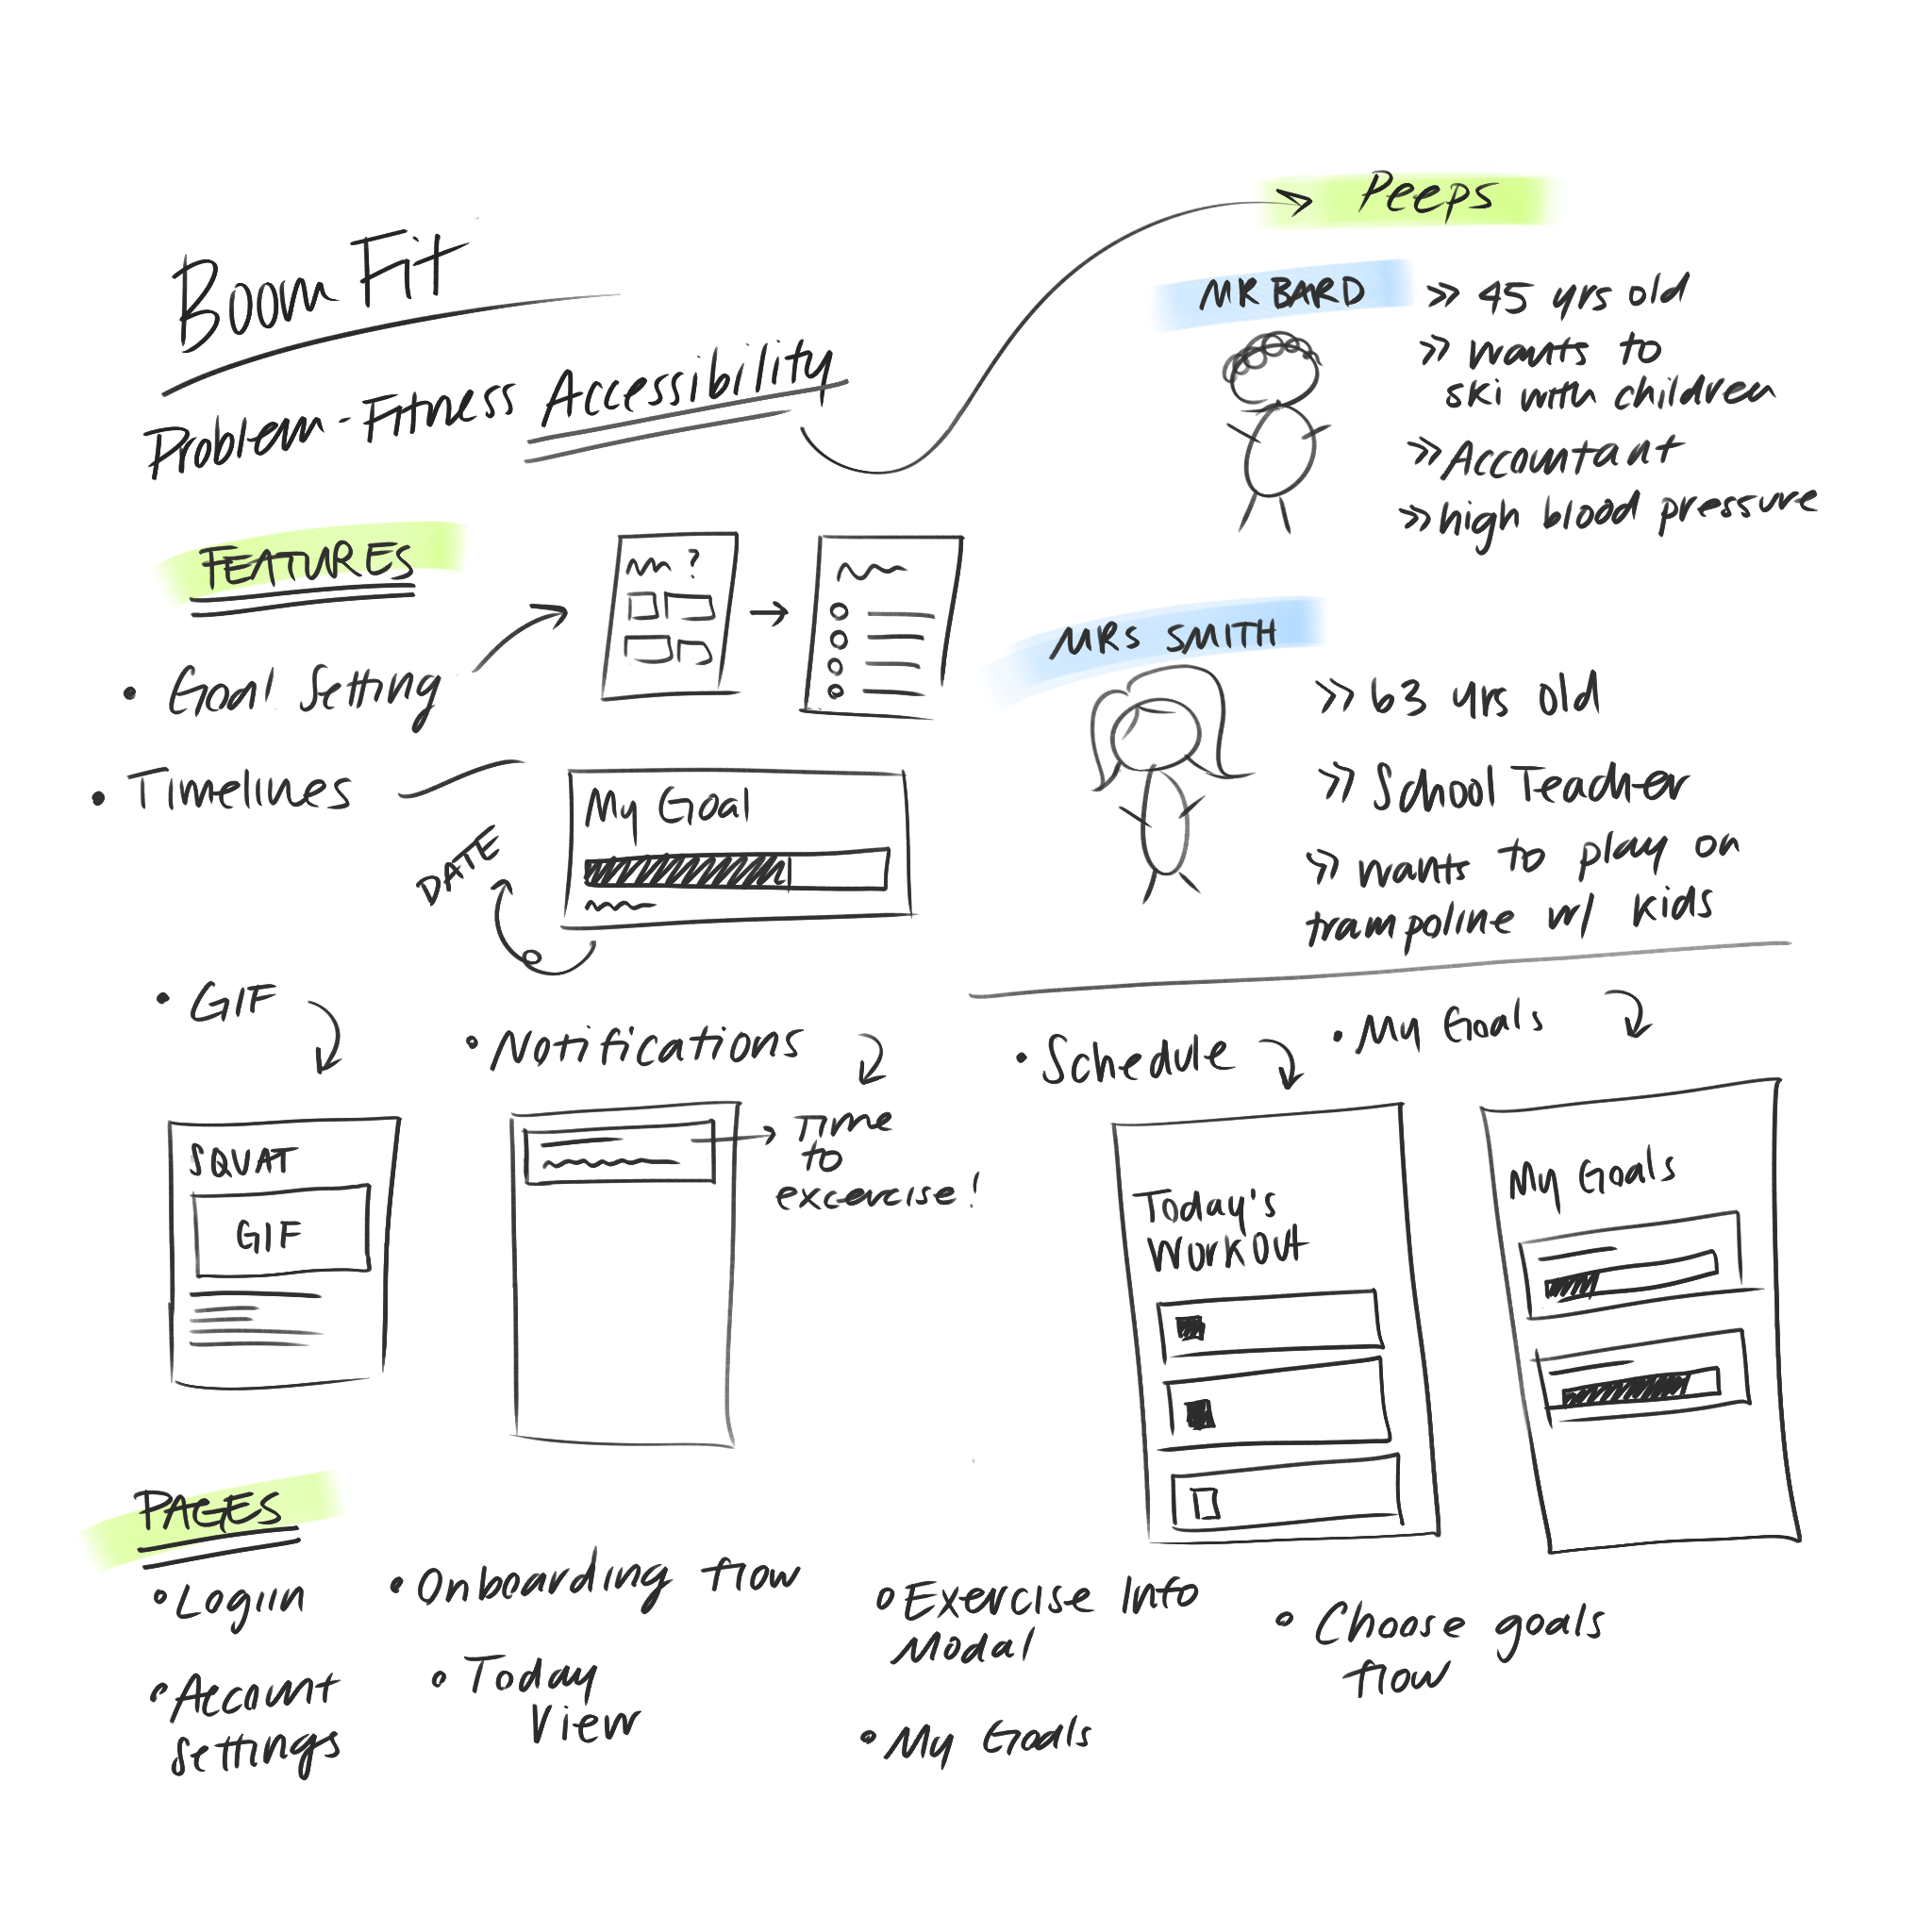 Boom Fit
Problem - Fitness Accessibility
Peeps
MR BARD
>> 45 yrs old
>> wants to
ski with children
>> Accountant
>> high blood pressure
MRS SMITH
>> 63 yrs old
>> School Teacher
>> wants to play on
trampoline w/ kids
FEATURES
• Goal Setting
?
• Timelines
My Goal
DATE
• GIF
SQUAT
GIF
• Notifications
Time
to
excercise!
• Schedule
Today's
Workout
• My Goals
My Goals
PAGES
• Logiin
• Onboarding flow
• Exercise Info
Modal
• Choose goals
flow
• Account
Settings
• Today
View
• My Goals